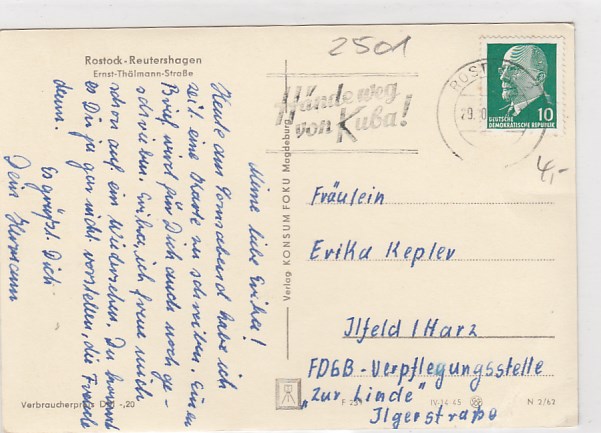 Rostock-Reutershagen
Ernst-Thälmann-Straße
2501
Hände weg
von Kuba!
ROST
29.
10
DEUTSCHE
DEMOKRATISCHE REPUBLIK
4,-
Meine liebe Erika!
Heute am Sonnabend habe ich
Zeit eine Karte zu schreiben. Einen
Brief wird für Dich auch noch ge-
schrieben. Erika, ich freue mich
schon auf ein Wiedersehen. Du kannst
es Dir ja gar nicht vorstellen, die Freude
dann.
Es grüßt Dich
Dein Hermann
Verlag KONSUM FOKU Magdeburg
Fräulein
Erika Kepler
Ilfeld / Harz
FDGB-Verpflegungsstelle
„Zur Linde"
Ilgerstraße
Verbraucherpreis DM -,20
IV-14-45
N 2/62